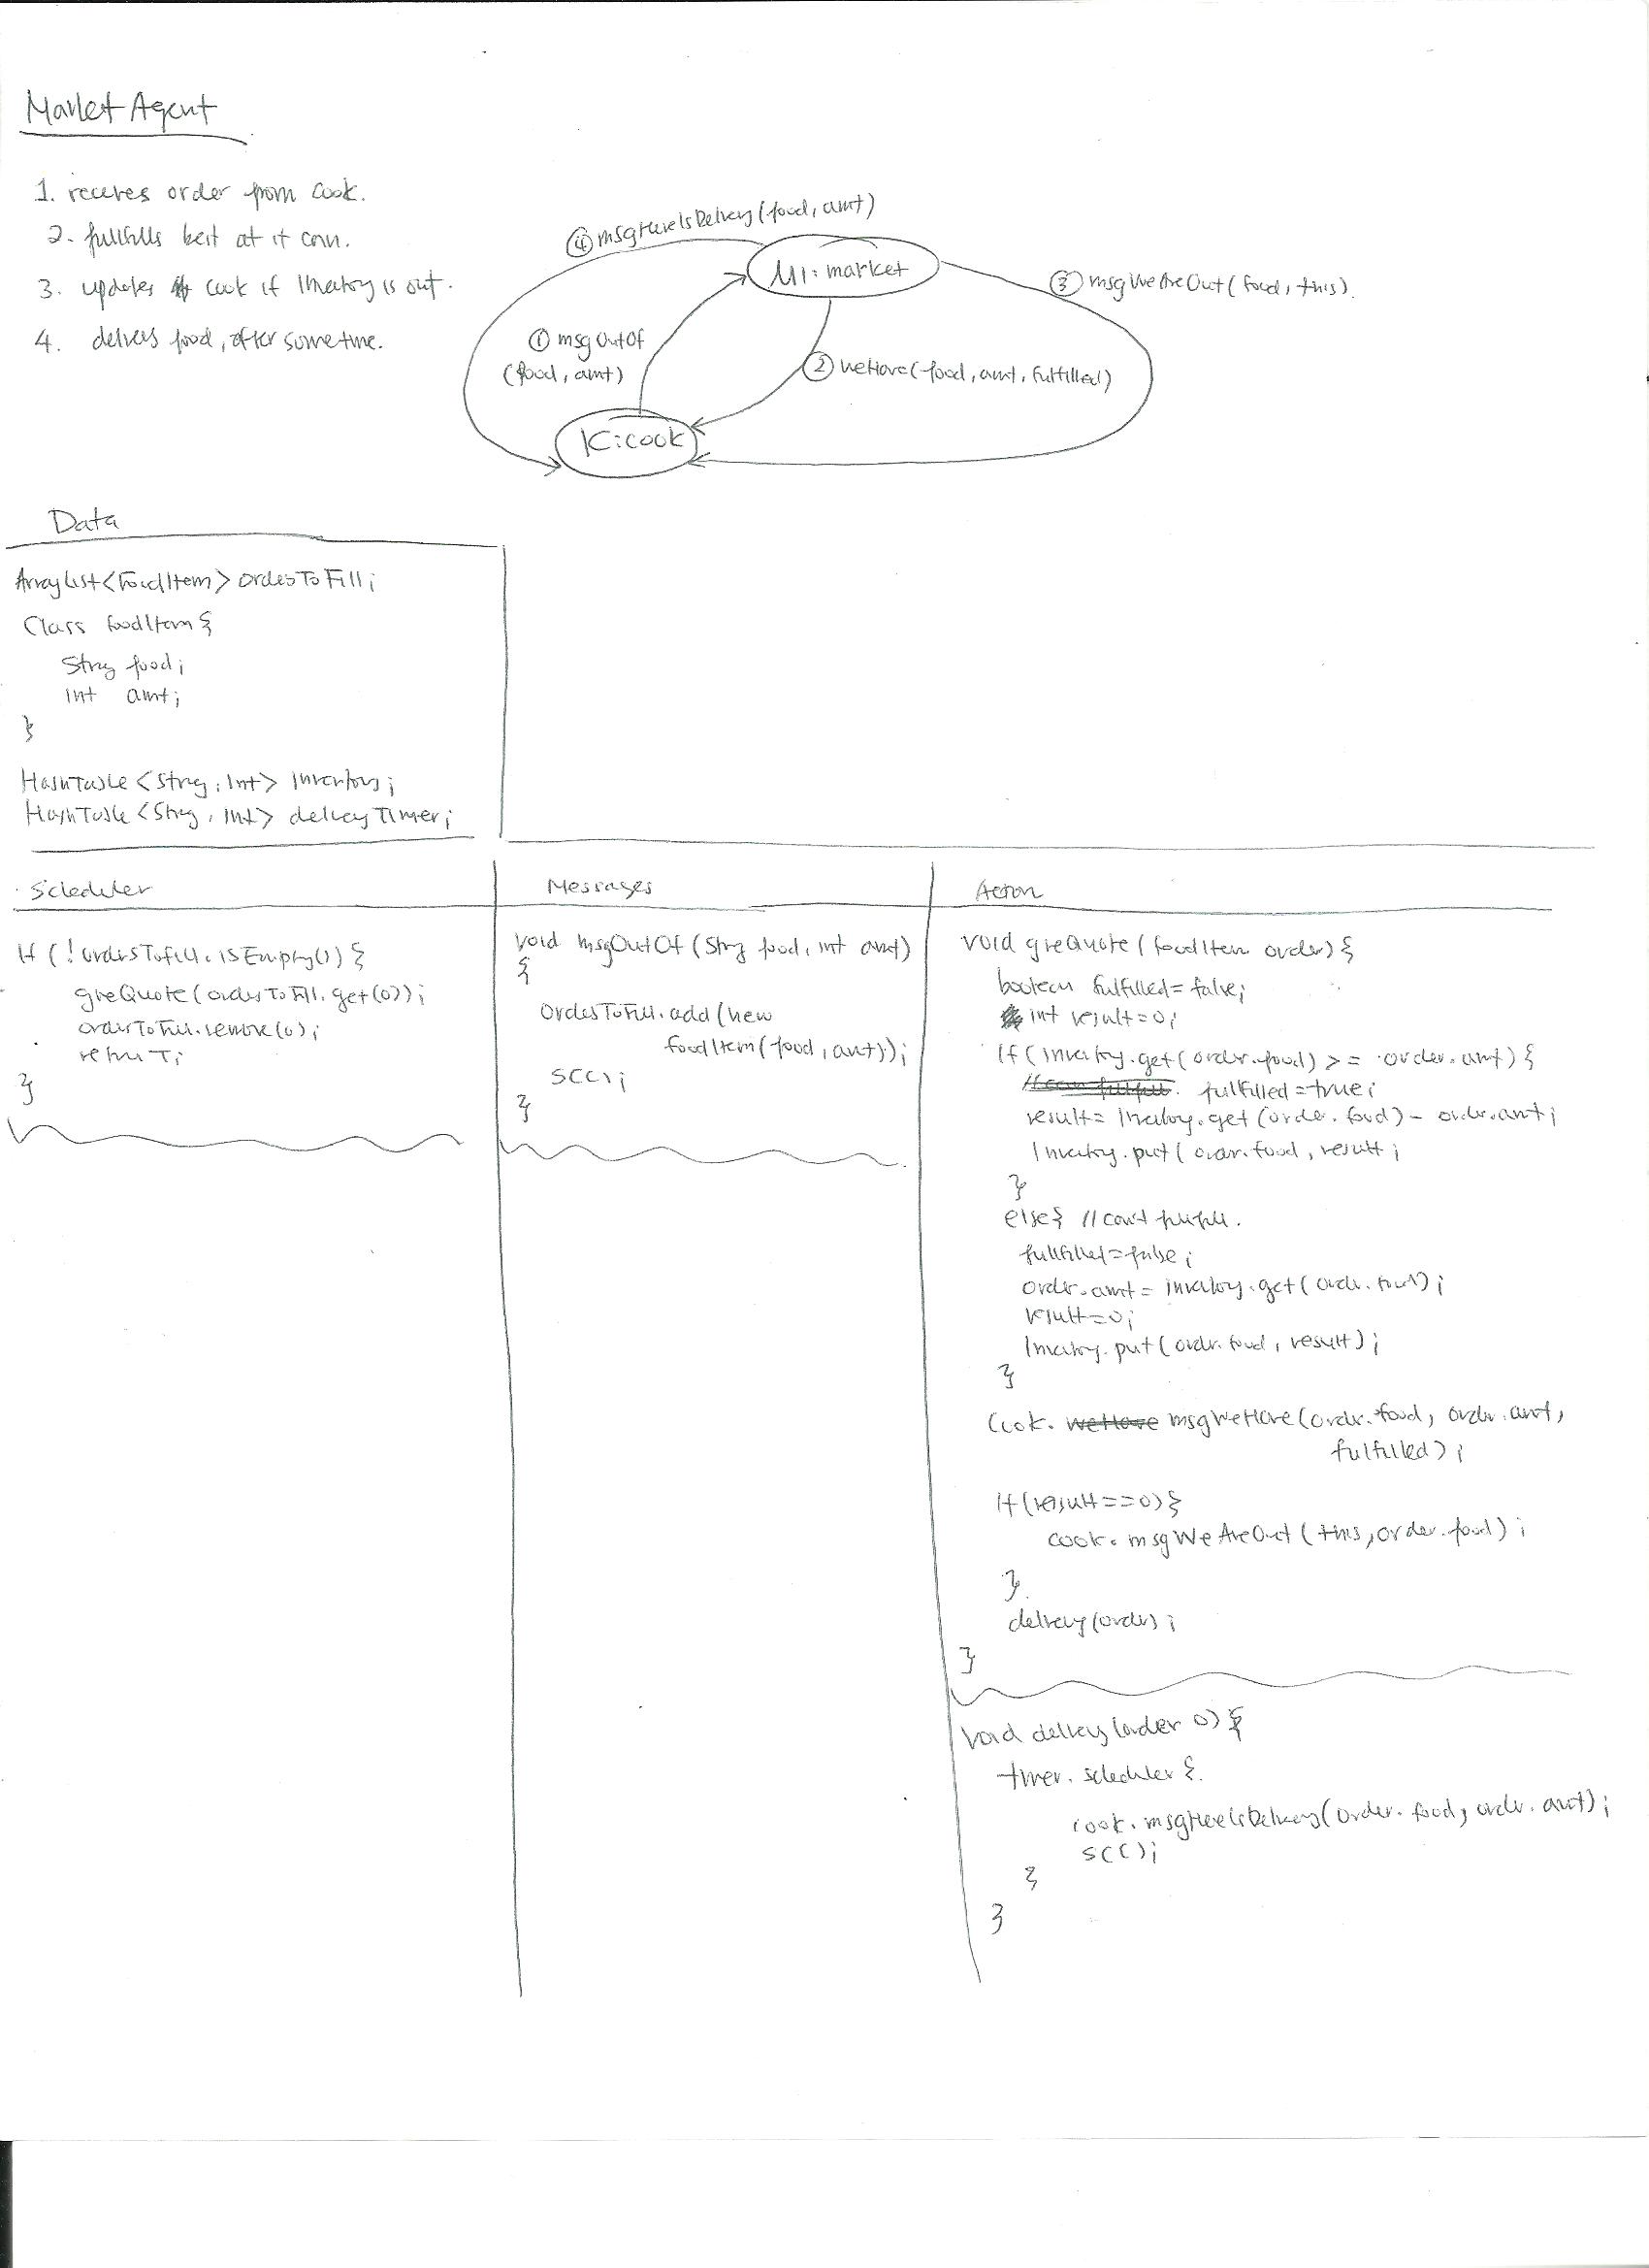 Market Agent
1. receives order from cook.
2. fullfills best at it can.
3. updates cook if inventory is out.
4. delivers food, after sometime.
④ msgHereIsDelivery(food, amt)
M1: market
③ msgWeAreOut(food, this).
① msgOutOf
(food, amt)
② weHave(food, amt, fulfilled)
K: cook
Data
ArrayList<FoodItem> ordersToFill;
Class foodItem {
String food;
int amt;
}
HashTable <String, Int> inventory;
HashTable <String, Int> deliveryTimer;
Scheduler
If (!ordersTofill.isEmpty()) {
giveQuote(ordersToFill.get(0));
ordersToFill.remove(0);
return T;
}
Messages
void msgOutOf (String food, int amt)
{
OrdersToFill.add(new
foodItem(food, amt));
SCC();
}
Action
void giveQuote (foodItem order) {
boolean fulfilled = false;
int result=0;
If (Inventory.get(order.food) >= order.amt) {
fulfilled = true;
result = Inventory.get(order.food) - order.amt;
Inventory.put(order.food, result;
}
else { // can't fulfill.
fullfilled = false;
order.amt = inventory.get(order.food);
result=0;
Inventory.put(order.food, result);
}
Cook. weHave msgWeHave(order.food, order.amt,
fulfilled);
If (result==0) {
cook.msgWeAreOut(this, order.food);
}
delivery(order);
}
void delivery(order o) {
timer.scheduler {
cook.msgHereIsDelivery(order.food, order.amt);
SCC();
}
}